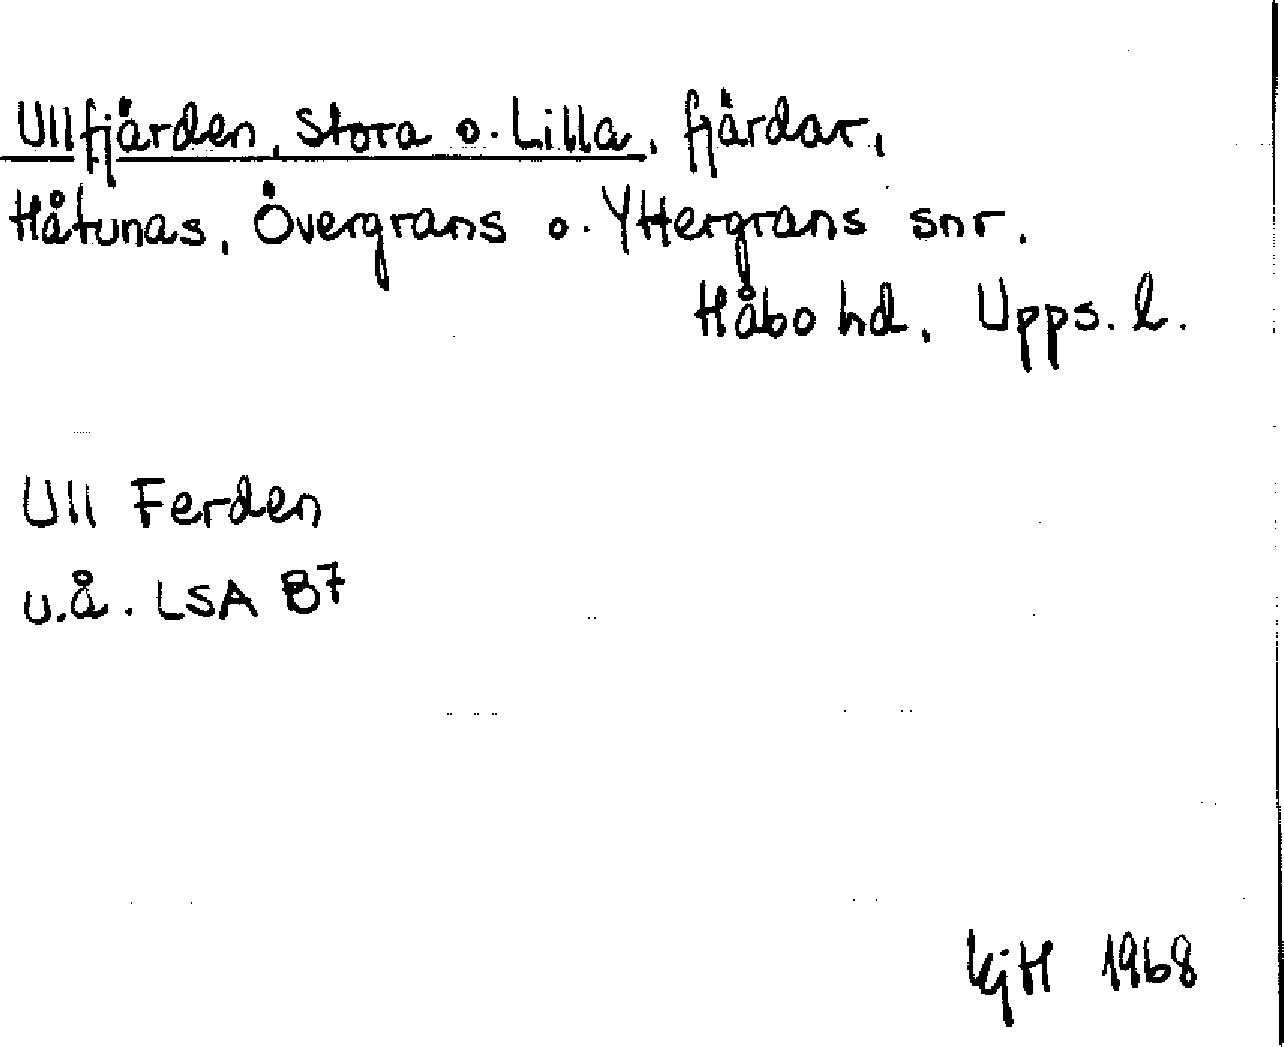 Ullfjärden, Stora o. Lilla, fjärdar,
Håtunas, Övergrans o. Yttergrans snr.
Håbo hd, Upps. l.
Ull Ferden
u.å. LSA B7
KjH 1968